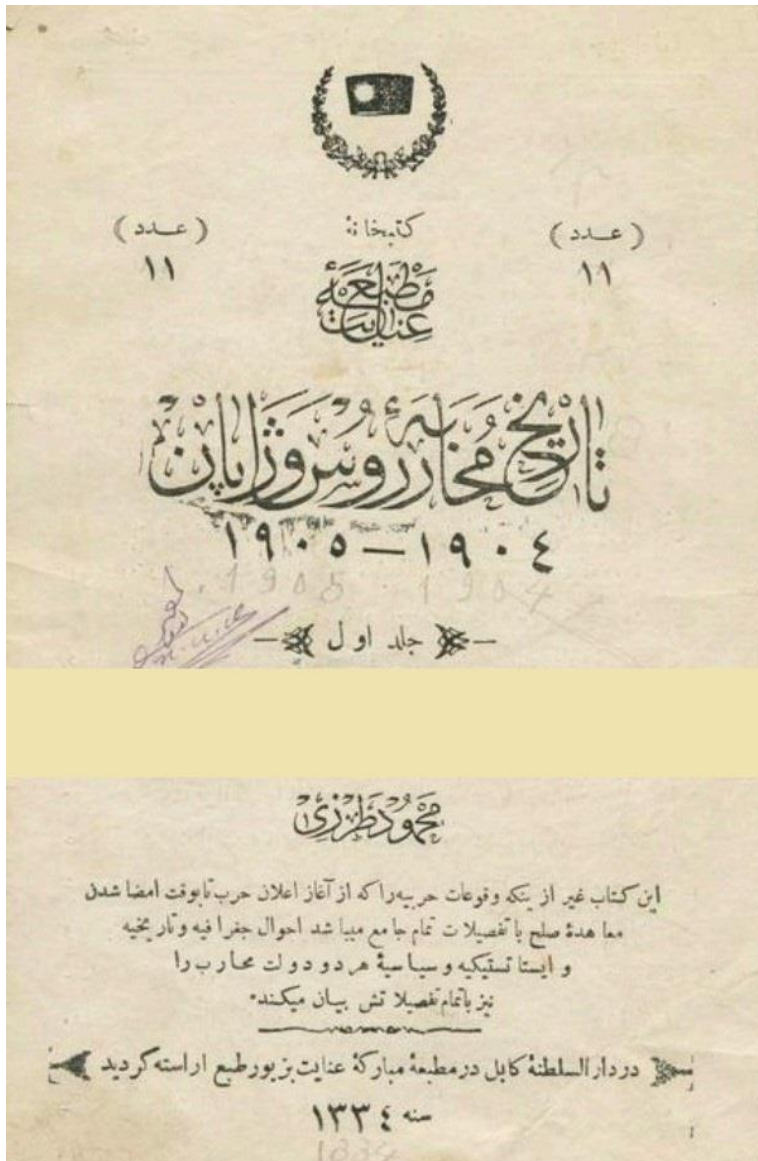 ( عـدد ) كتبخانهٔ ( عـدد )
۱۱ ۱۱
مَطْبَعَهٔ
عِنَايَت
تاريخ مُحَاربَهٔ روس وژاپان
۱۹۰۴—۱۹۰۵
1905 1904
جلد اول
محمود طرزى
اين كتاب غير از ينكه وقوعات حربيه را كه از آغاز اعلان حرب تا بوقت امضا شدن
معاهدهٔ صلح با تفصيلات تمام جامع ميباشد احوال جغرافيه وتاريخيه
و ايستاتستيكيه و سياسيهٔ هر دو دولت محارب را
نيز با تمام تفصيلاتش بيان ميكند٠
در دار السلطنهٔ كابل در مطبعهٔ مباركهٔ عنايت بزيور طبع اراسته كرديد
سنه ۱۳۳۴
1334